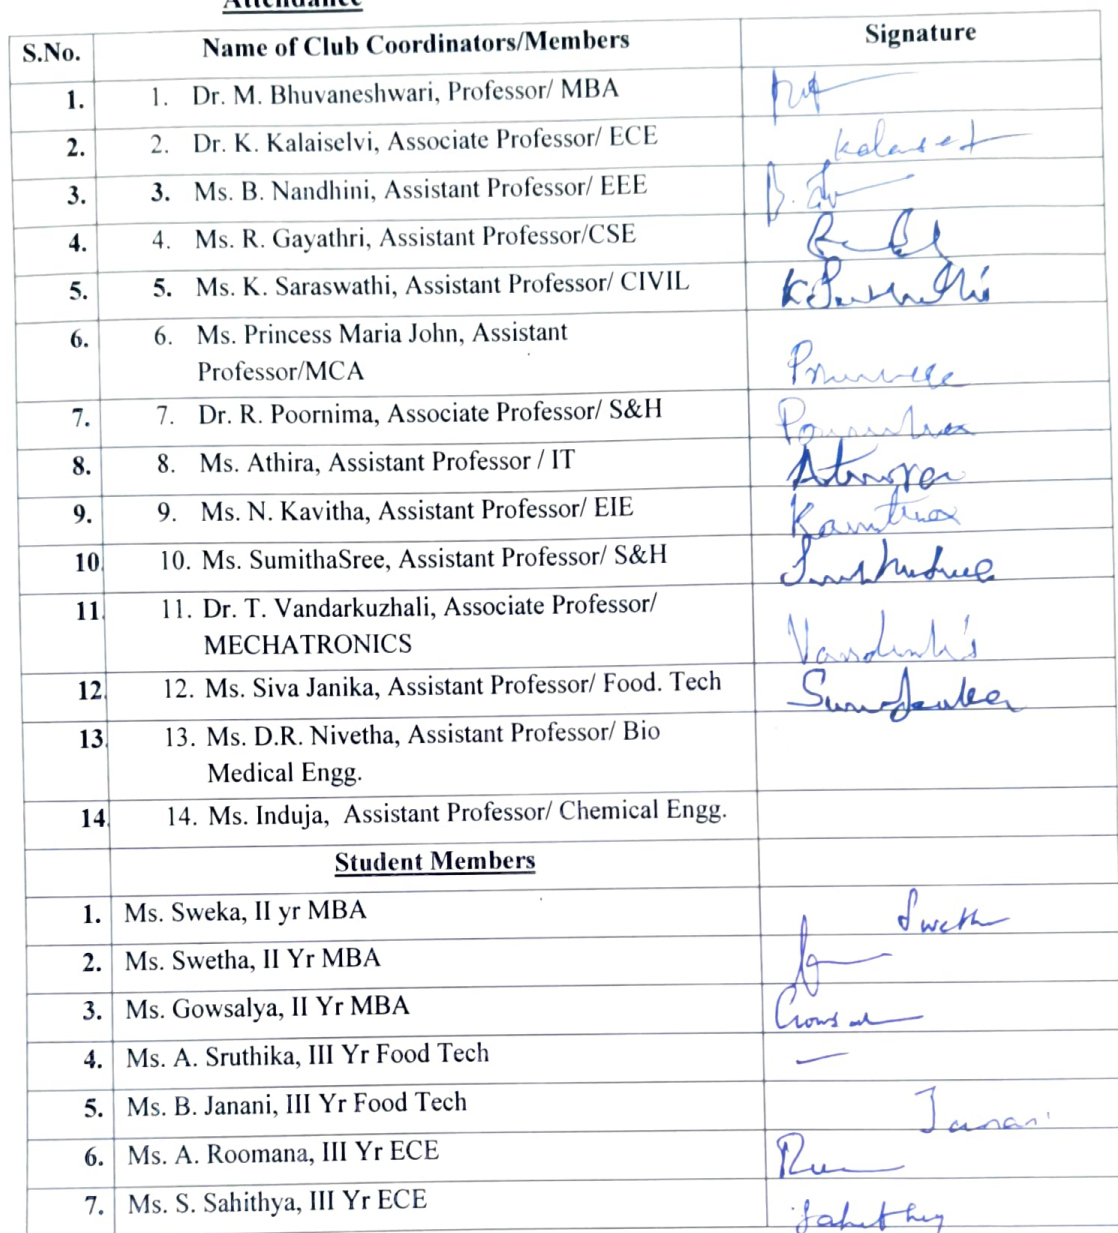 Attendance
S.No. Name of Club Coordinators/Members Signature
1. 1. Dr. M. Bhuvaneshwari, Professor/ MBA
2. 2. Dr. K. Kalaiselvi, Associate Professor/ ECE
3. 3. Ms. B. Nandhini, Assistant Professor/ EEE
4. 4. Ms. R. Gayathri, Assistant Professor/CSE
5. 5. Ms. K. Saraswathi, Assistant Professor/ CIVIL
6. 6. Ms. Princess Maria John, Assistant
Professor/MCA
7. 7. Dr. R. Poornima, Associate Professor/ S&H
8. 8. Ms. Athira, Assistant Professor / IT
9. 9. Ms. N. Kavitha, Assistant Professor/ EIE
10. 10. Ms. SumithaSree, Assistant Professor/ S&H
11. 11. Dr. T. Vandarkuzhali, Associate Professor/
MECHATRONICS
12. 12. Ms. Siva Janika, Assistant Professor/ Food. Tech
13. 13. Ms. D.R. Nivetha, Assistant Professor/ Bio
Medical Engg.
14. 14. Ms. Induja, Assistant Professor/ Chemical Engg.
Student Members
1. Ms. Sweka, II yr MBA
2. Ms. Swetha, II Yr MBA
3. Ms. Gowsalya, II Yr MBA
4. Ms. A. Sruthika, III Yr Food Tech
5. Ms. B. Janani, III Yr Food Tech Janani
6. Ms. A. Roomana, III Yr ECE
7. Ms. S. Sahithya, III Yr ECE